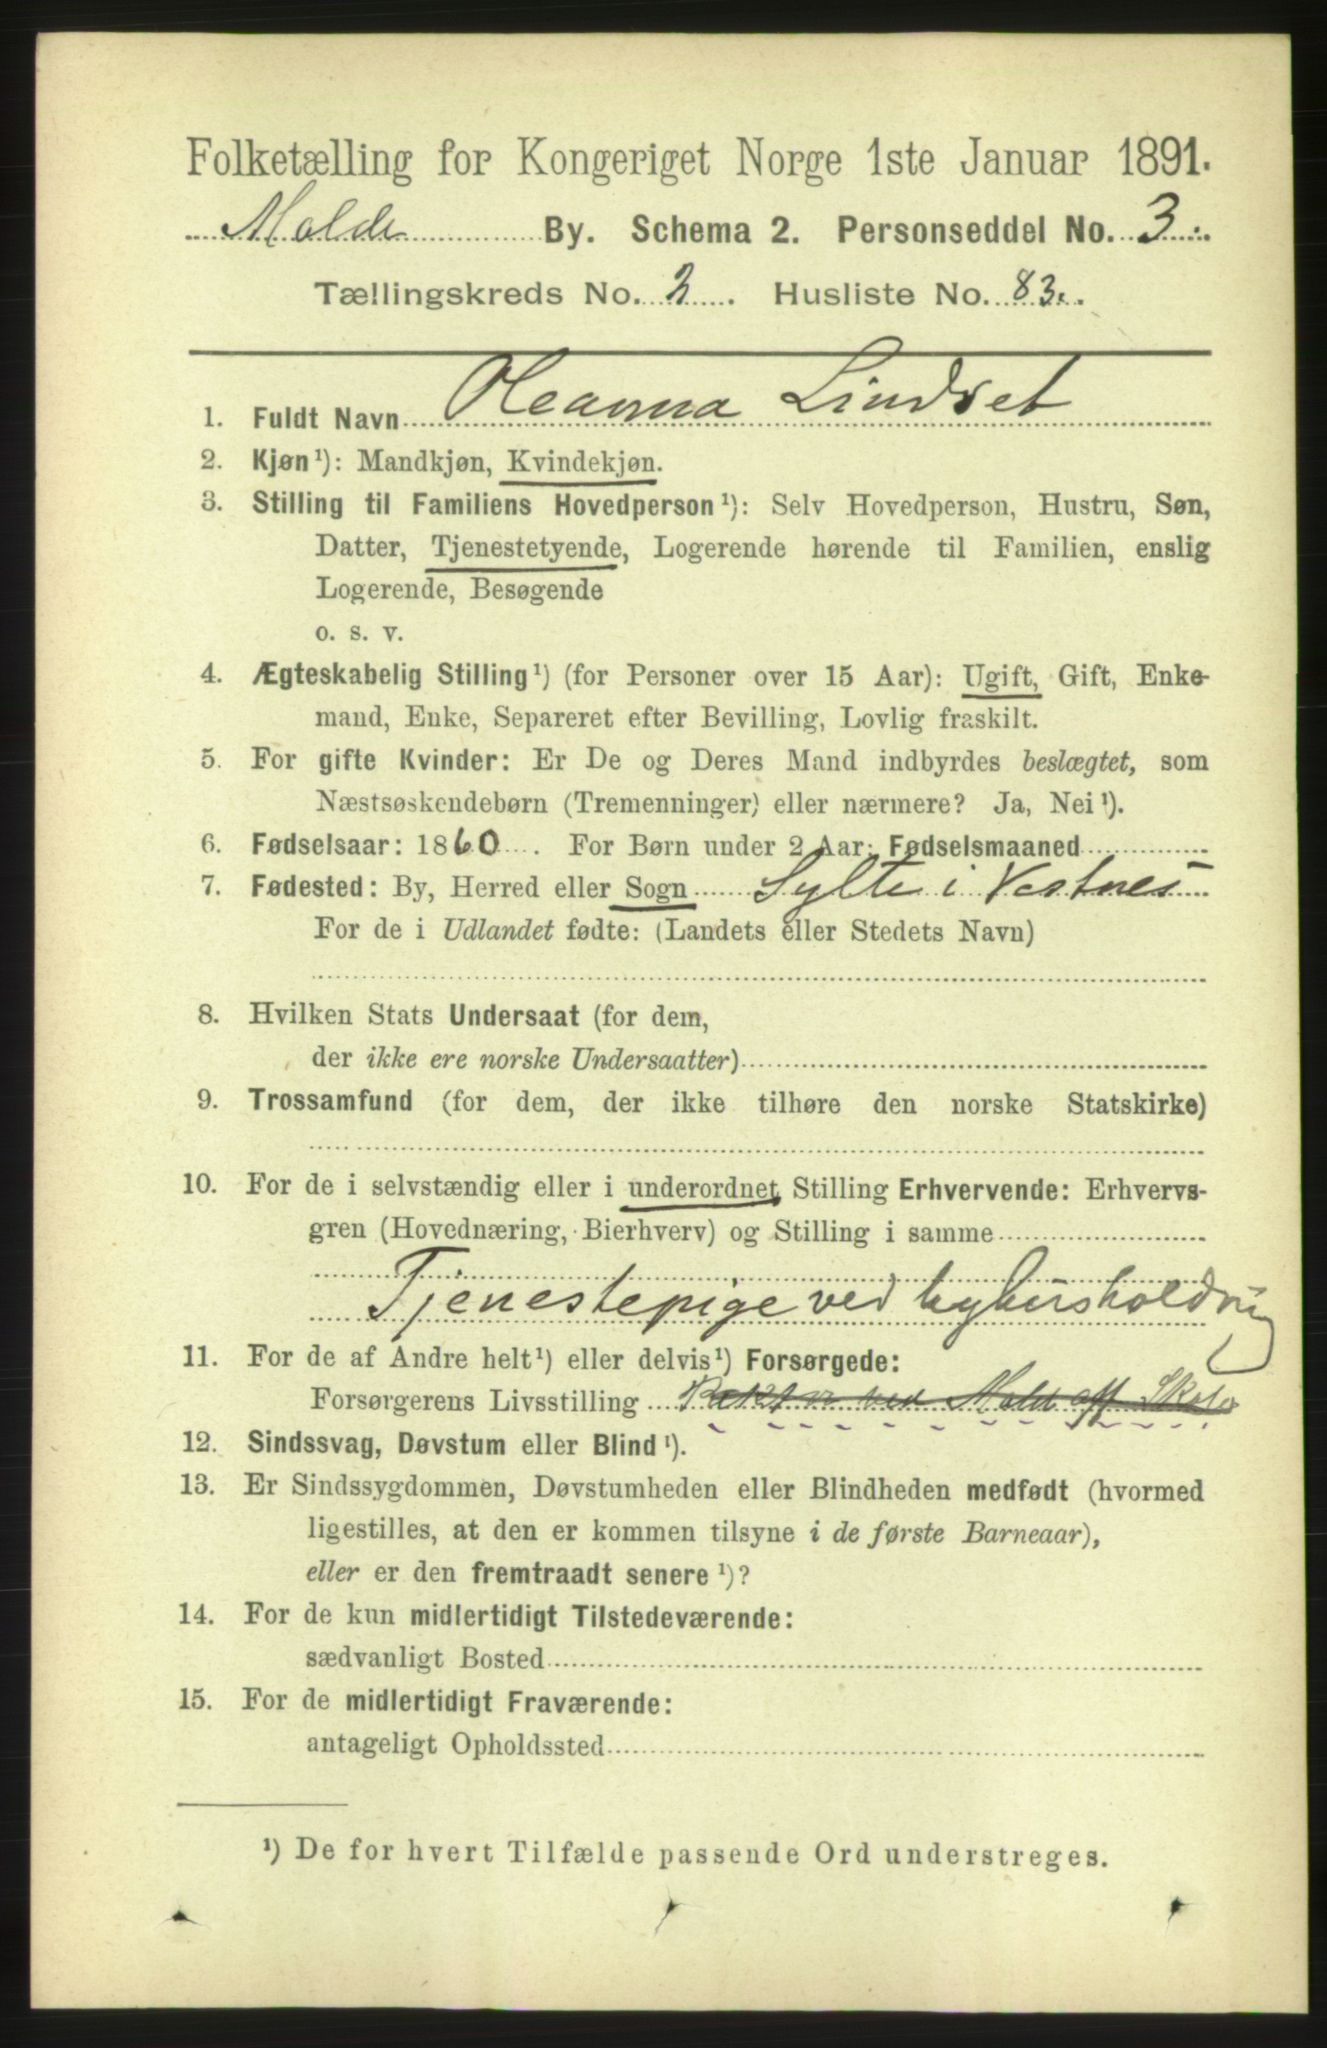 Folketælling for Kongeriget Norge 1ste Januar 1891.
Molde By. Schema 2. Personseddel No. 3.
Tællingskreds No. 2. Husliste No. 83.
1. Fuldt Navn Oleanna Lindset
2. Kjøn¹): Mandkjøn, Kvindekjøn.
3. Stilling til Familiens Hovedperson¹): Selv Hovedperson, Hustru, Søn,
Datter, Tjenestetyende, Logerende hørende til Familien, enslig
Logerende, Besøgende
o. s. v.
4. Ægteskabelig Stilling¹) (for Personer over 15 Aar): Ugift, Gift, Enke-
mand, Enke, Separeret efter Bevilling, Lovlig fraskilt.
5. For gifte Kvinder: Er De og Deres Mand indbyrdes beslægtet, som
Næstsøskendebørn (Tremenninger) eller nærmere? Ja, Nei¹).
6. Fødselsaar: 1860. For Børn under 2 Aar: Fødselsmaaned
7. Fødested: By, Herred eller Sogn Sylte i Vestnes
For de i Udlandet fødte: (Landets eller Stedets Navn)
8. Hvilken Stats Undersaat (for dem,
der ikke ere norske Undersaatter)
9. Trossamfund (for dem, der ikke tilhøre den norske Statskirke)
10. For de i selvstændig eller i underordnet Stilling Erhvervende: Erhvervs-
gren (Hovednæring, Bierhverv) og Stilling i samme
Tjenestepige ved
11. For de af Andre helt¹) eller delvis¹) Forsørgede:
Forsørgerens Livsstilling ved Skole
12. Sindssvag, Døvstum eller Blind¹).
13. Er Sindssygdommen, Døvstumheden eller Blindheden medfødt (hvormed
ligestilles, at den er kommen tilsyne i de første Barneaar),
eller er den fremtraadt senere¹)?
14. For de kun midlertidigt Tilstedeværende:
sædvanligt Bosted
15. For de midlertidigt Fraværende:
antageligt Opholdssted
¹) De for hvert Tilfælde passende Ord understreges.